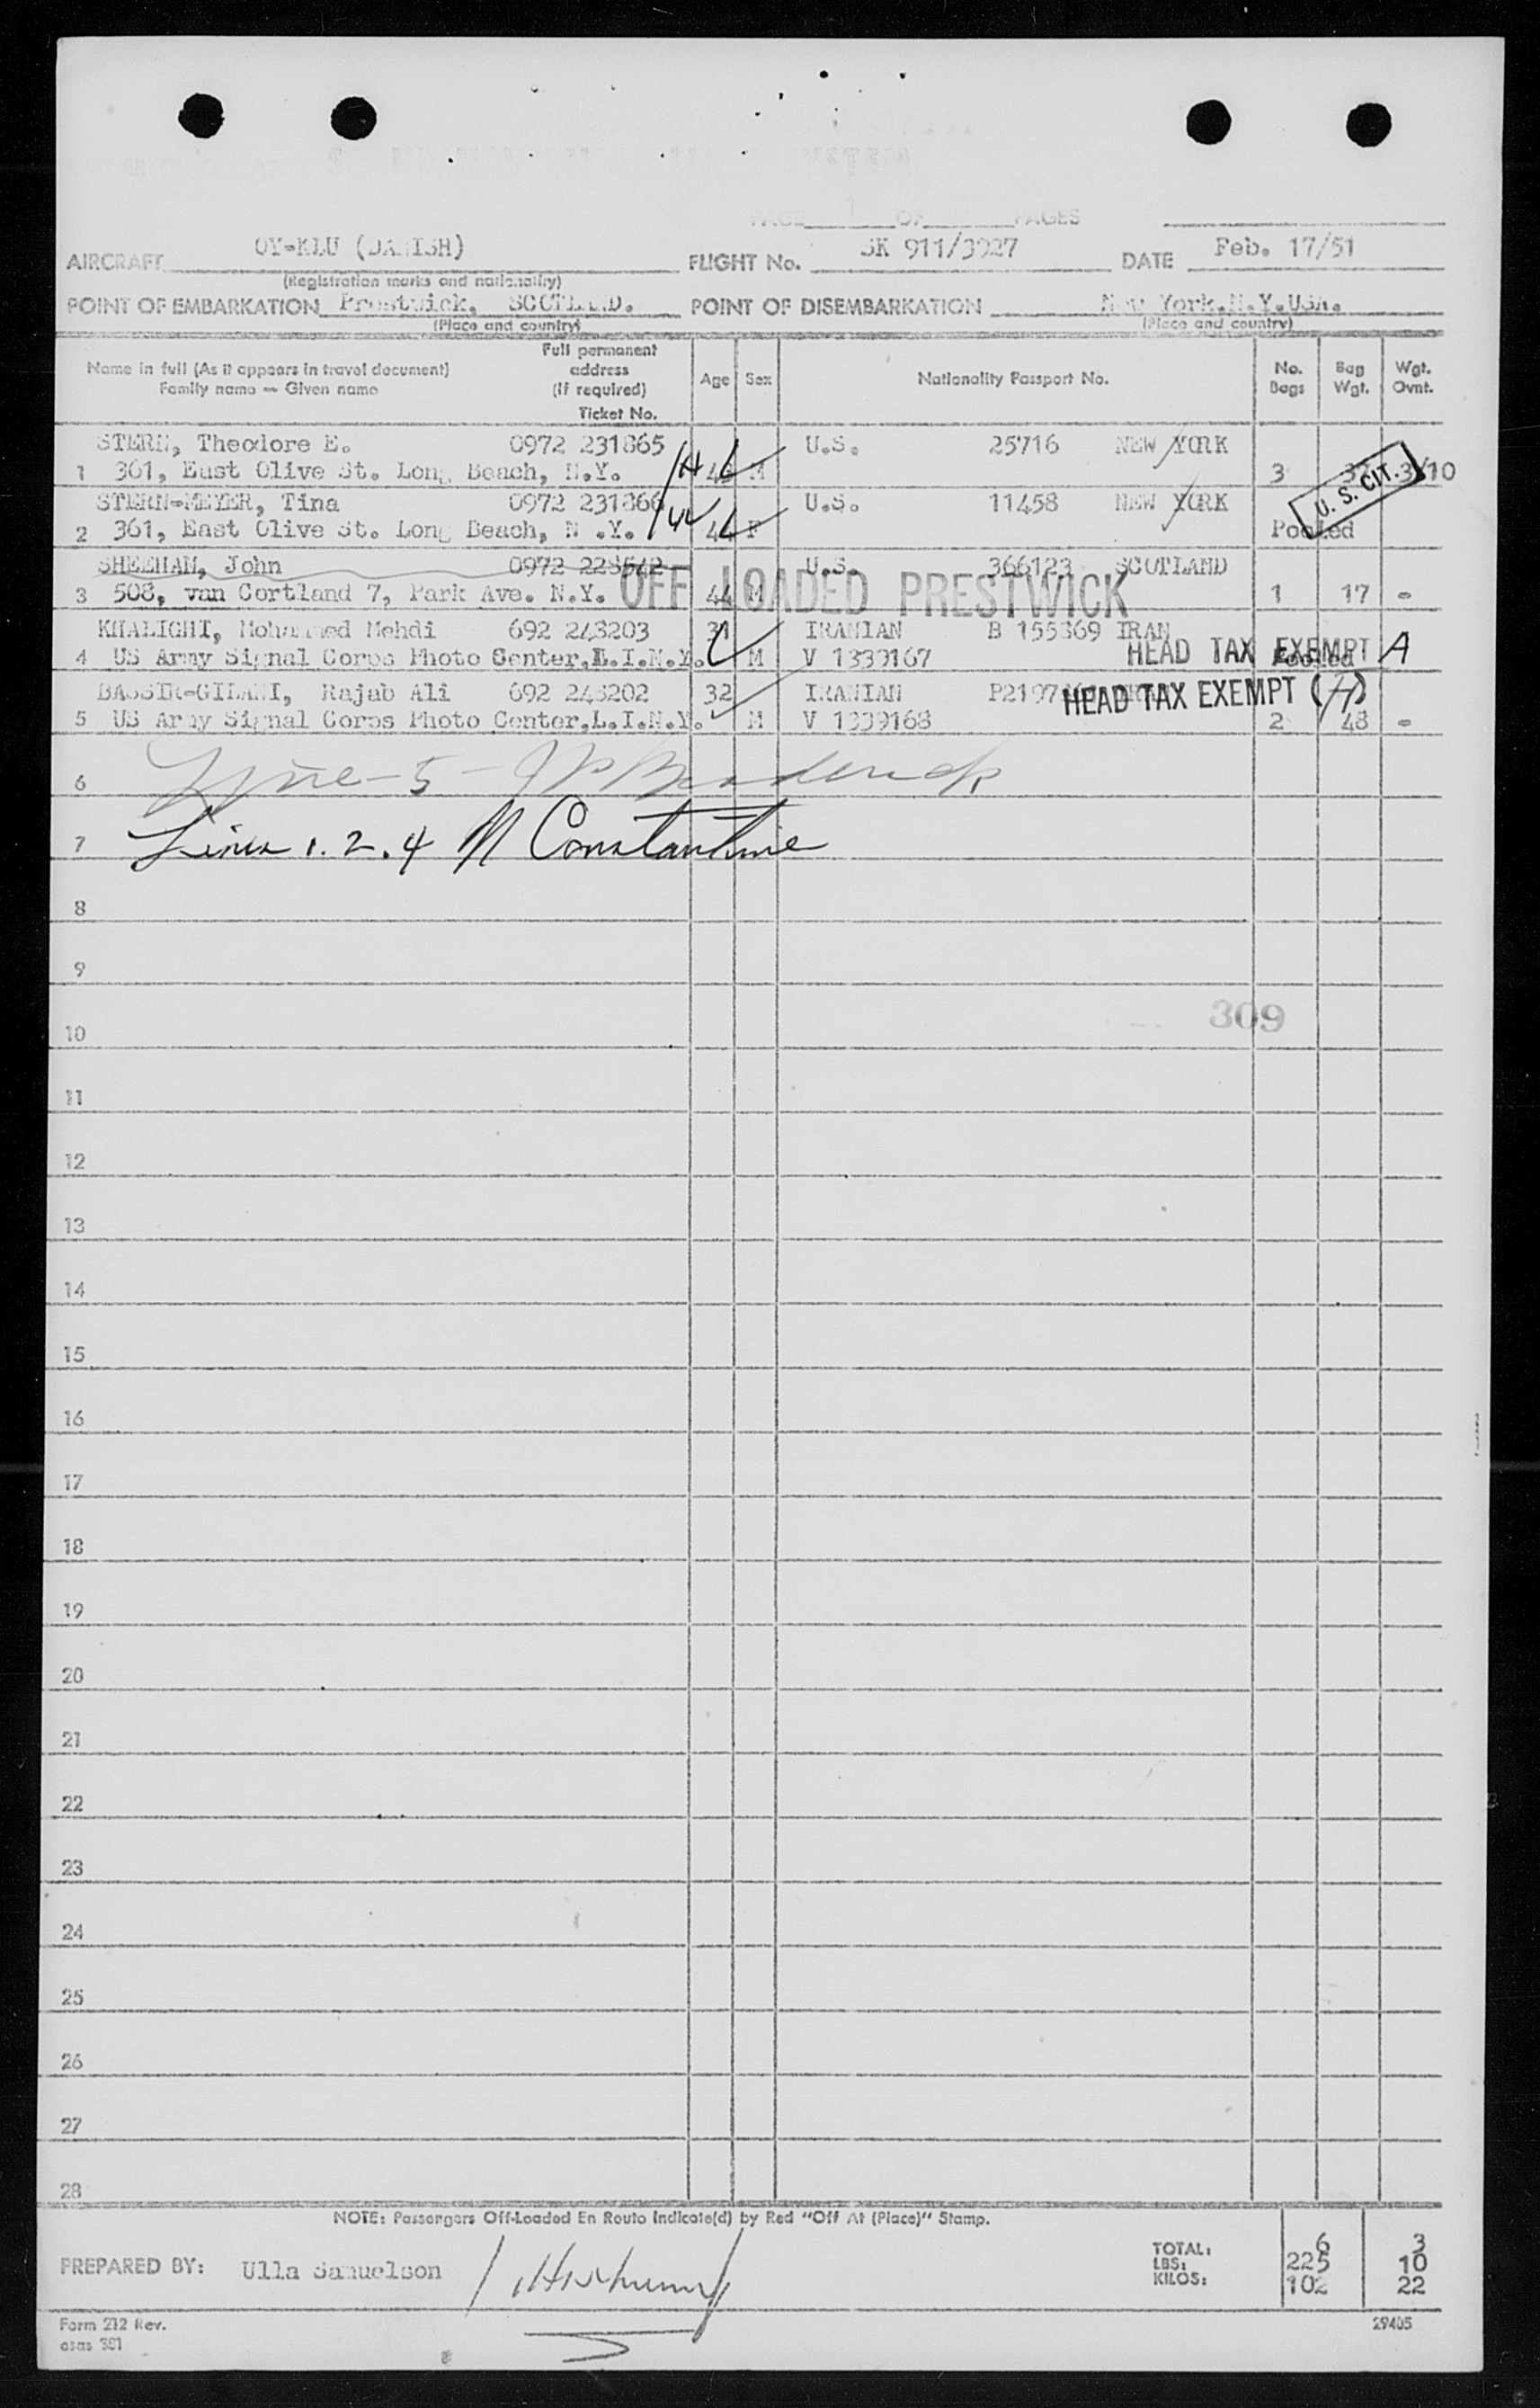 PAGE 1 OF PAGES
AIRCRAFT OY-KLU (DANISH) FLIGHT No. SK 911/3927 DATE Feb. 17/51
(Registration marks and nationality)
POINT OF EMBARKATION Prestwick, SCOTLAND. POINT OF DISEMBARKATION New York.N.Y.USA.
(Place and country) (Place and country)
Name in full (As it appears in travel document) Family name — Given name Full permanent address (if required) Ticket No. Age Sex Nationality Passport No. No. Bags Bag Wgt. Wgt. Ovnt.
STERN, Theodore E. 0972 231865 U.S. 25716 NEW YORK
1 361, East Olive St. Long Beach, N.Y. M 3 32 3/10
U. S. CIT.
STERN-MEYER, Tina 0972 231866 U.S. 11458 NEW YORK
2 361, East Olive St. Long Beach, N .Y. 44 F Pooled
SHEEHAN, John 0972 228542 U.S. 366123 SCOTLAND
OFF LOADED PRESTWICK
3 508, van Cortland 7, Park Ave. N.Y. 44 M 1 17 -
KHALIGHI, Mohammed Mehdi 692 243203 31 IRANIAN B 155369 IRAN
4 US Army Signal Corps Photo Center,L.I.N.Y. M V 1339167 Pooled
HEAD TAX EXEMPT A
BASSIR-GILANI, Rajab Ali 692 243202 32 IRANIAN
HEAD TAX EXEMPT (H)
5 US Army Signal Corps Photo Center,L.I.N.Y. M V 1339168 2 48 -
6 Line - 5 -
7 Lines 1. 2. 4 M Constantine
8
9
309
10
11
12
13
14
15
16
17
18
19
20
21
22
23
24
25
26
27
28
NOTE: Passengers Off-Loaded En Route Indicate(d) by Red "Off At (Place)" Stamp.
PREPARED BY: Ulla Samuelson
TOTAL: 6 3
LBS: 225 10
KILOS: 102 22
Form 212 Rev. 29405
asas 381